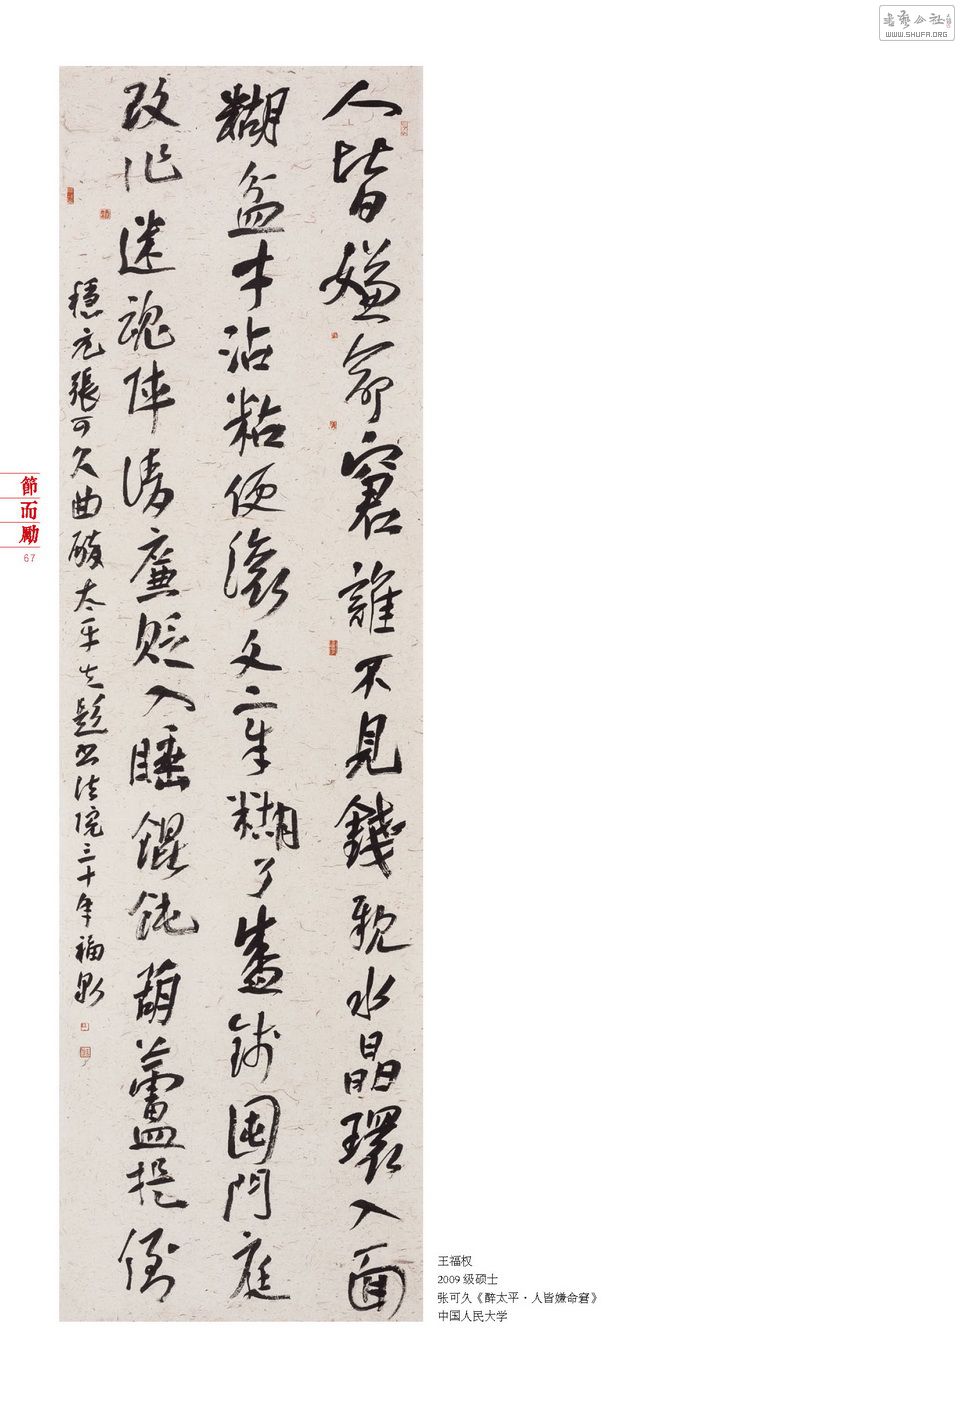 書藝公社
WWW.SHUFA.ORG
人皆嫌命窘誰不見錢親水晶環入面
糊盆才沾粘便滾文章糊了盛錢囤門庭
改作迷魂陣清廉貶入睡餛飩葫蘆提倒
穩元張可久曲醉太平失題書法院三十年福权
節而勵
67
王福权
2009 级硕士
张可久《醉太平·人皆嫌命窘》
中国人民大学